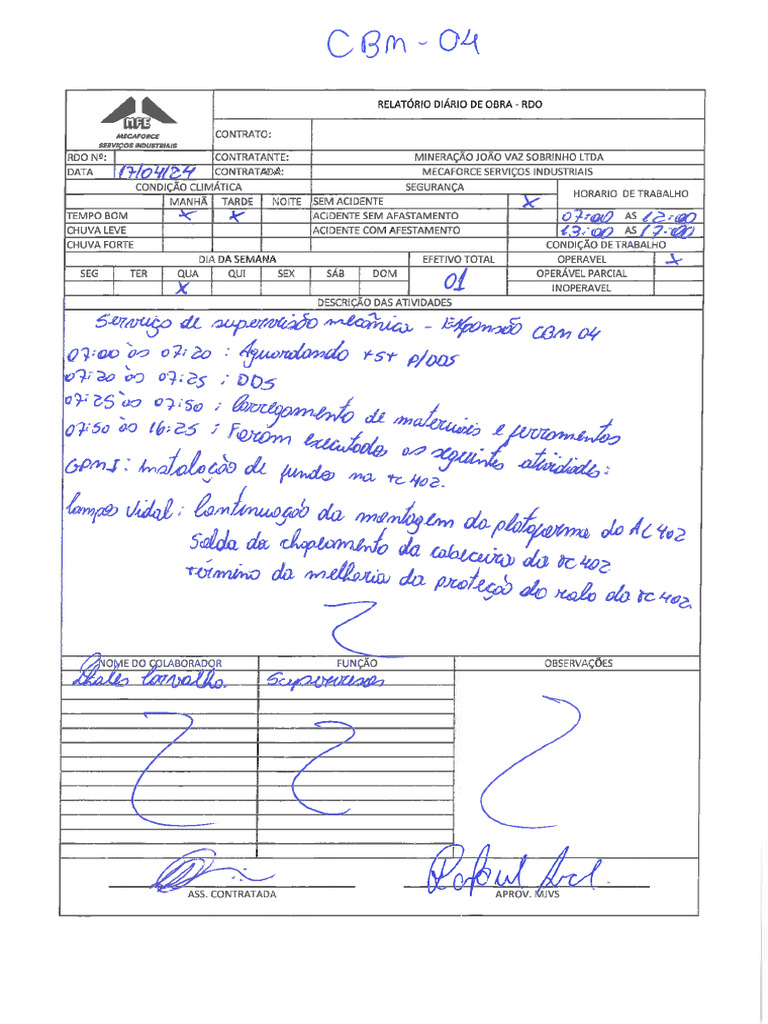 CBM - 04
RELATÓRIO DIÁRIO DE OBRA - RDO
MFE
MECAFORCE
SERVIÇOS INDUSTRIAIS
CONTRATO:
RDO Nº: CONTRATANTE: MINERAÇÃO JOÃO VAZ SOBRINHO LTDA
DATA 17/04/24 CONTRATADA: MECAFORCE SERVIÇOS INDUSTRIAIS
CONDIÇÃO CLIMÁTICA SEGURANÇA HORARIO DE TRABALHO
MANHÃ TARDE NOITE SEM ACIDENTE X
TEMPO BOM X X ACIDENTE SEM AFASTAMENTO 07:00 AS 12:00
CHUVA LEVE ACIDENTE COM AFESTAMENTO 13:00 AS 17:00
CHUVA FORTE CONDIÇÃO DE TRABALHO
DIA DA SEMANA EFETIVO TOTAL OPERAVEL X
SEG TER QUA QUI SEX SÁB DOM 01 OPERÁVEL PARCIAL
X INOPERAVEL
DESCRIÇÃO DAS ATIVIDADES
Serviço de supervisão mecânica - Expansão CBM 04
07:00 às 07:20 : Aguardando TST p/DDS
07:20 às 07:25 : DDS
07:25 às 07:50 : Carregamento de materiais e ferramentas
07:50 às 16:25 : Foram executadas as seguintes atividades:
GPMI : Instalação de fundos na TC 402.
Campos Vidal : Continuação da montagem da plataforma do AL 402
Solda da chapeamento da cabeceira da TC 402
término da melhoria da proteção do ralo da TC 402.
NOME DO COLABORADOR FUNÇÃO OBSERVAÇÕES
Thales Carvalho. Supervisor
ASS. CONTRATADA APROV. MJVS